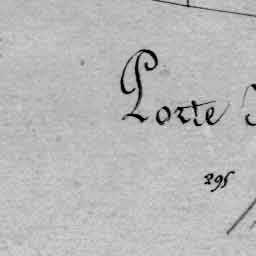 Porte
295